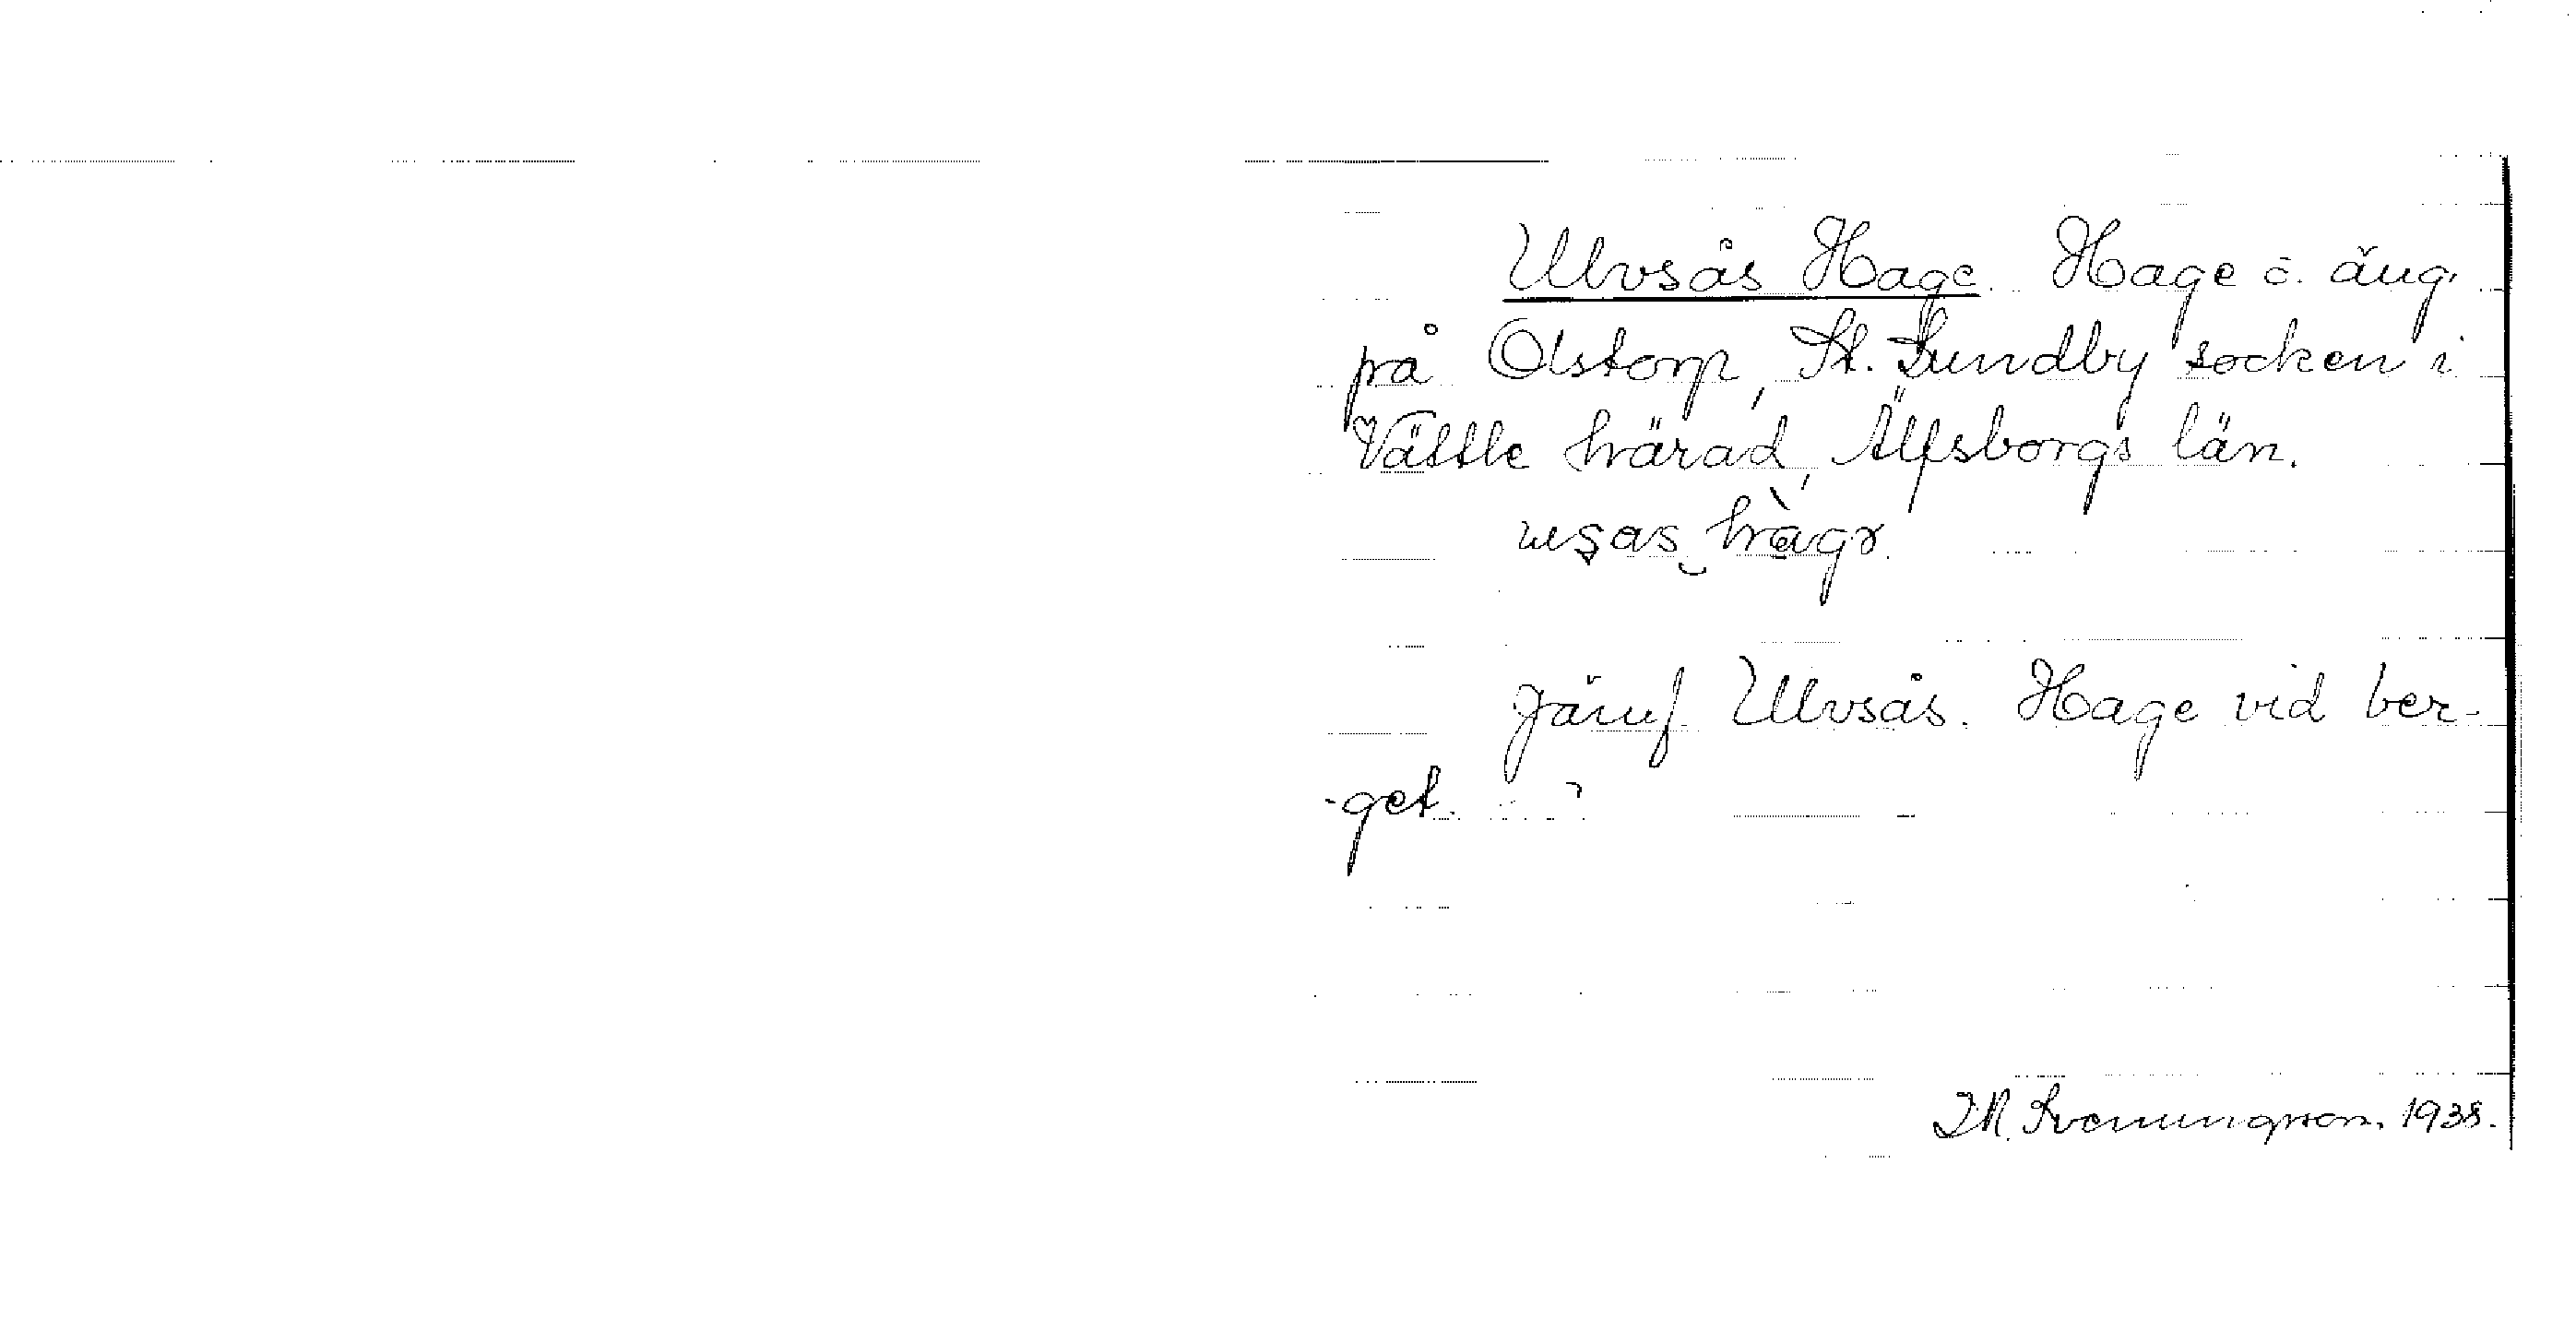 Ulvsås Hage. Hage o. äng
på Olstorp, St. Lundby socken i
Vättle härad, Älfsborgs län.
Jämf. Ulvsås. Hage vid ber-
-get.
Svenungsson. 1938.